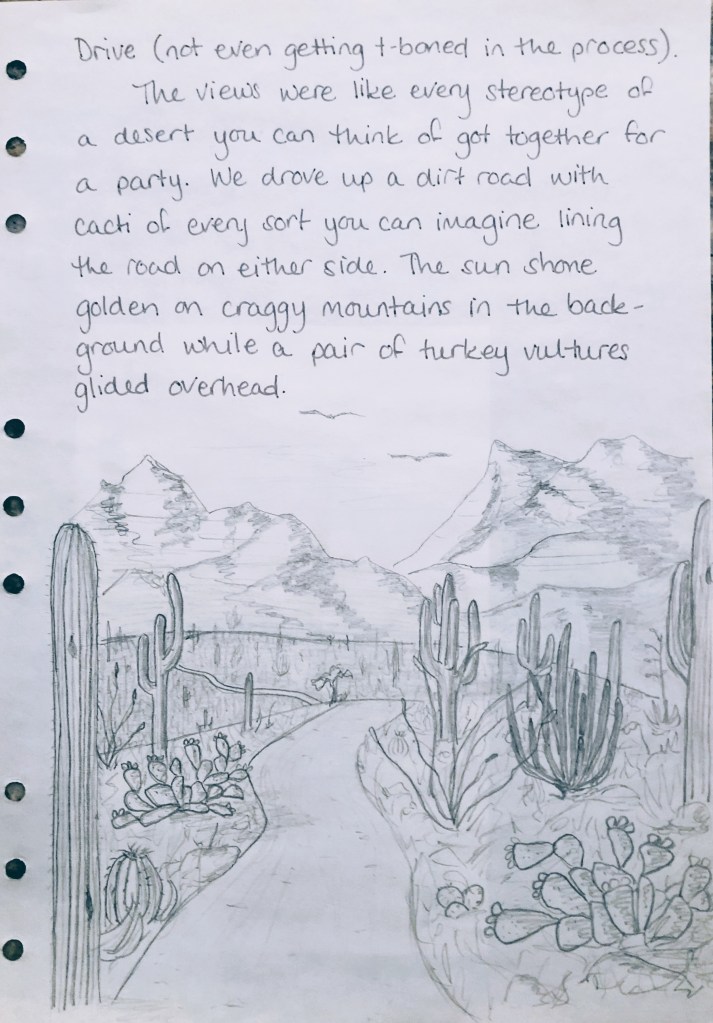 Drive (not even getting t-boned in the process).
The views were like every stereotype of
a desert you can think of got together for
a party. We drove up a dirt road with
cacti of every sort you can imagine lining
the road on either side. The sun shone
golden on craggy mountains in the back-
ground while a pair of turkey vultures
glided overhead.